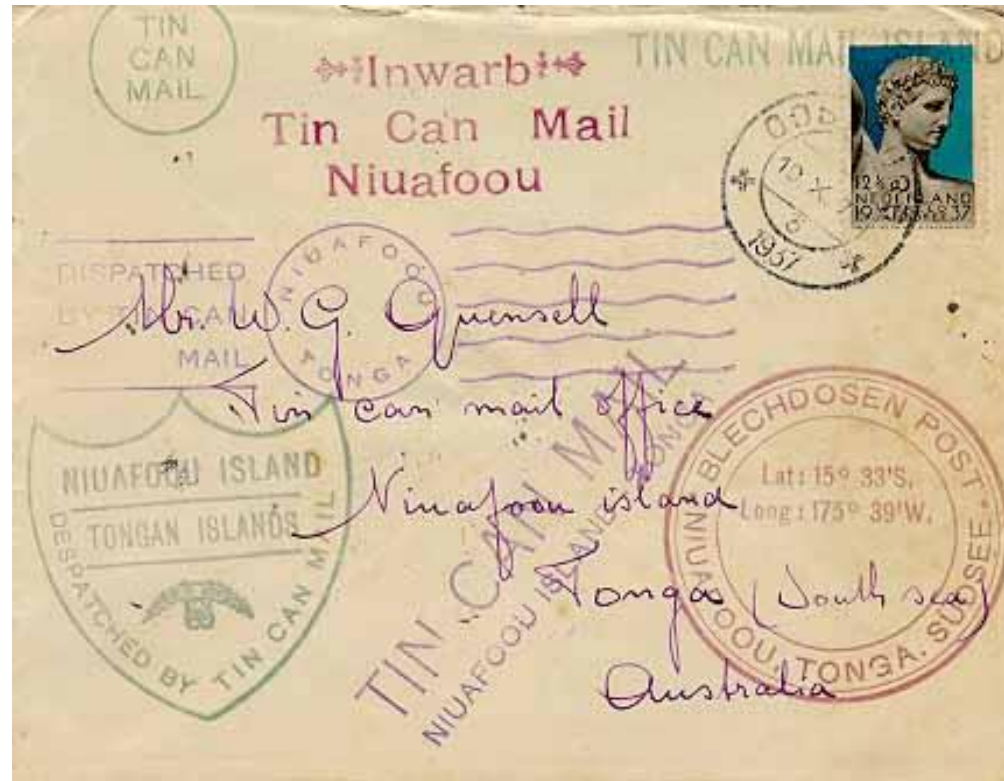 TIN
CAN
MAIL
TIN CAN MAIL ISLAND
Inwarb
Tin Can Mail
Niuafoou
10 X
1937
12½
NEDERLAND
1937
DISPATCHED
BY TIN CAN
MAIL
NIUAFOOU
TONGA
Mr. W. G. Quensell
Tin can mail office
Niuafoou island
Tonga (South sea)
Australia
NIUAFOOU ISLAND
TONGAN ISLANDS
DESPATCHED BY TIN CAN MAIL
TIN CAN MAIL
NIUAFOOU ISLAND TONGA
BLECHDOSEN POST.
NIUAFOOU, TONGA. SUDSEE.
Lat: 15° 33'S,
Long: 175° 39'W.